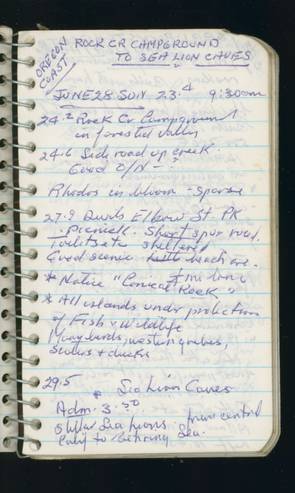 OREGON COAST
ROCK CR CAMPGROUND
TO SEA LION CAVES
JUNE 28 SUN 23.4 9:30am
24.2 Rock Cr Campground
in forested valley
24.6 Side road up creek
Good O/N - ?
Rhodos in bloom - sparse
27.9 Devils Elbow St. PK
- picnic. Short spur road.
Toilets etc sheltered
Good scenic little beach are.
* Notice "Conical Rock"
* All islands under protection
of Fish & Wildlife
Many birds, western grebes,
& ducks
29.5 * Sea Lion Caves
Adm. 3.50
Stellar Sea Lions from central
Calif to Bering Sea.